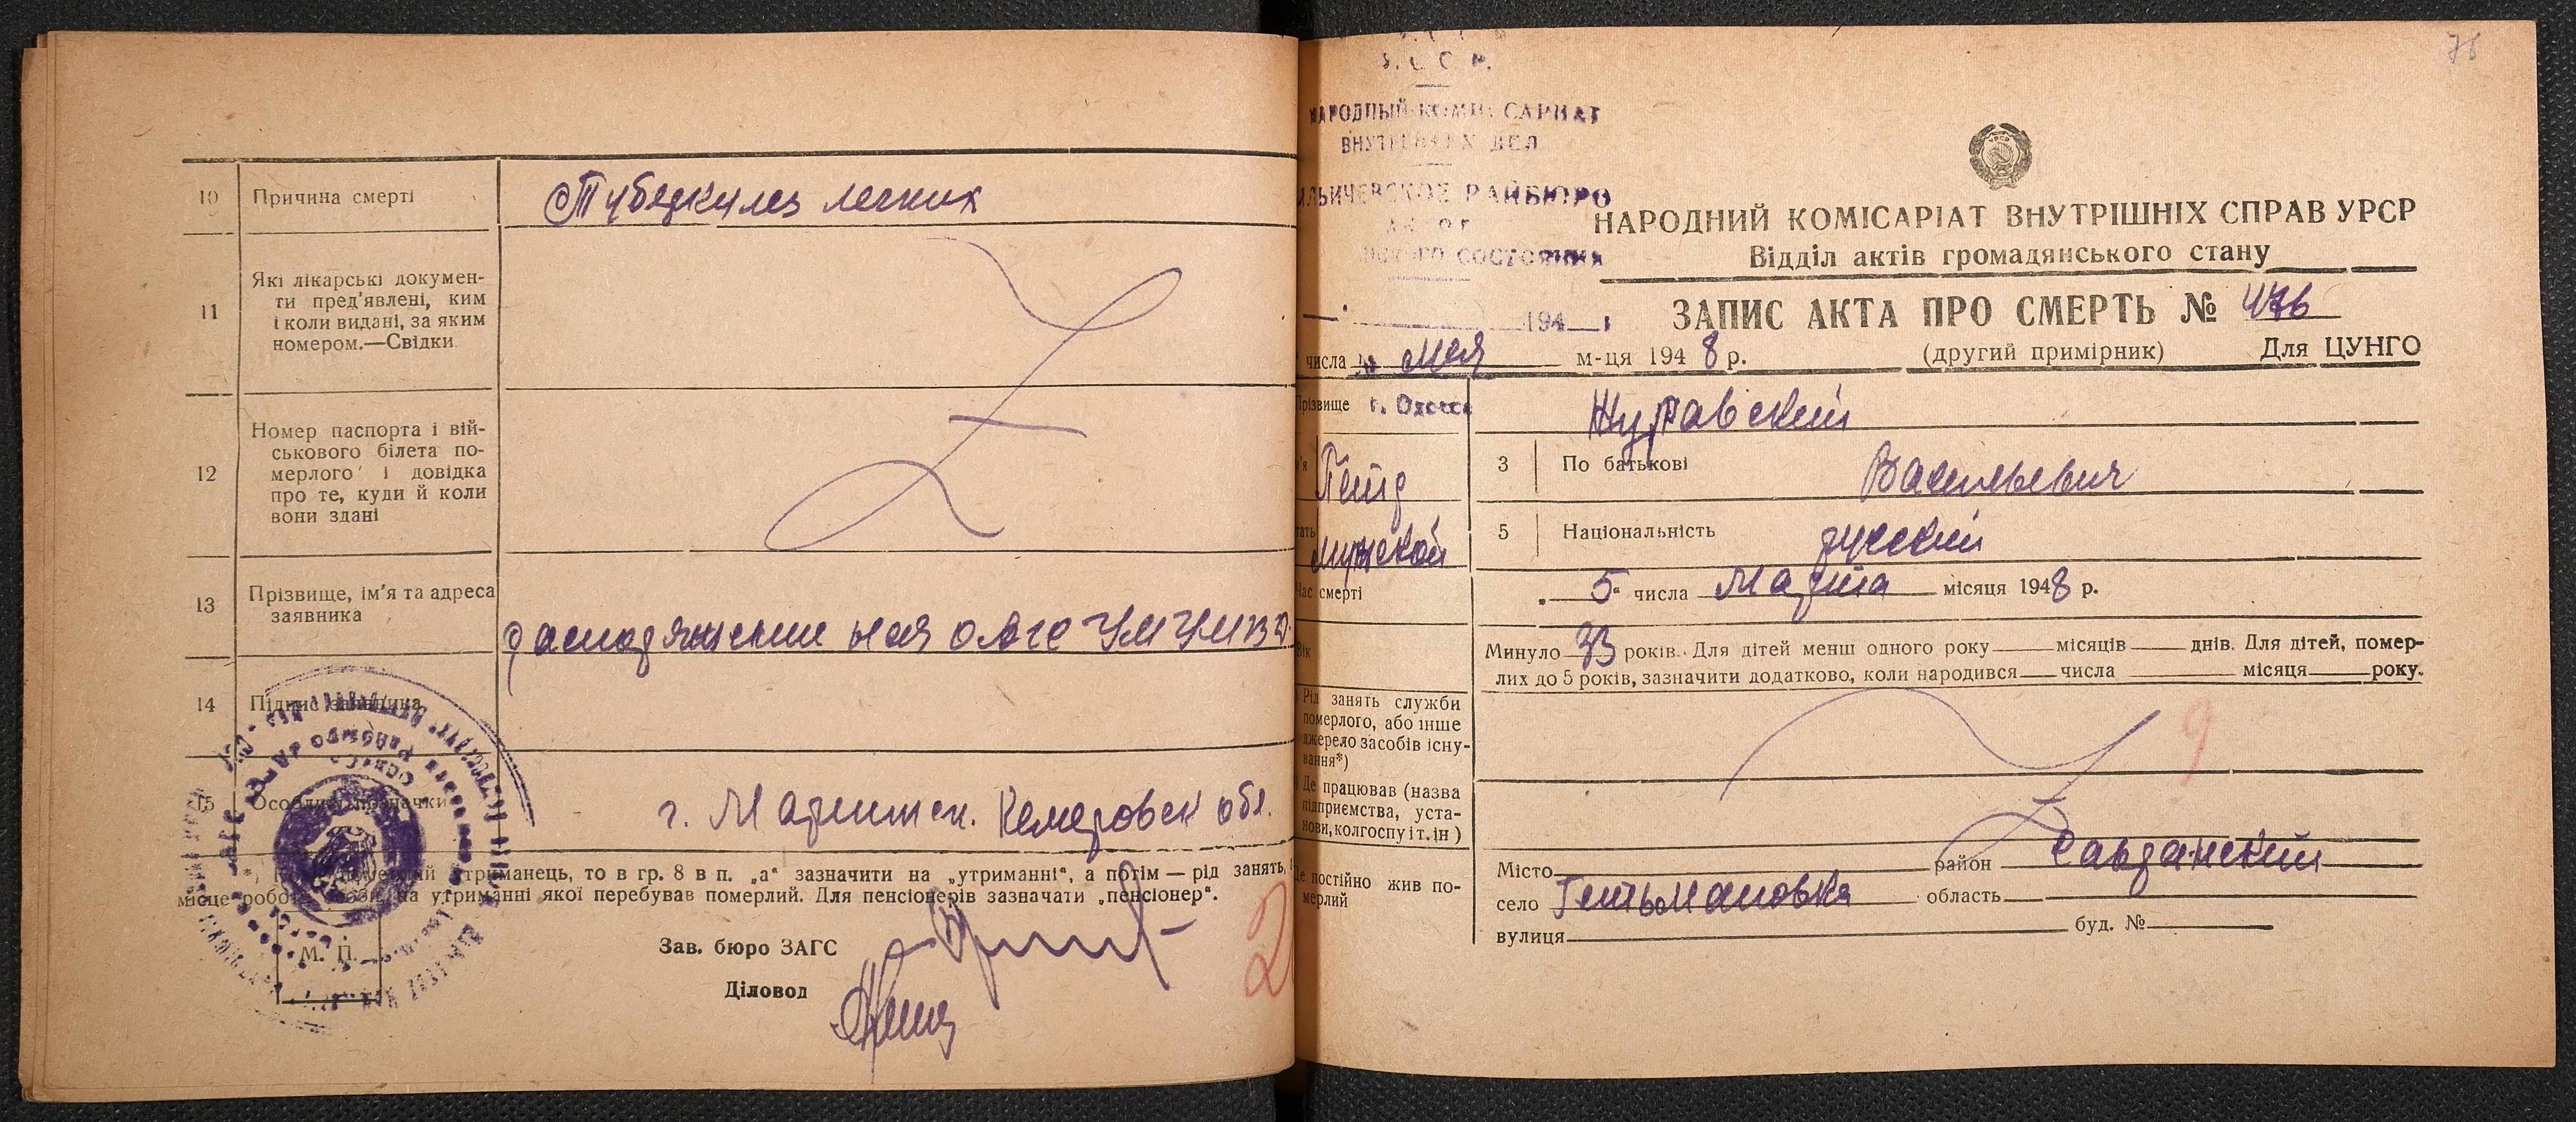 10 Причина смерти Туберкулез легких
11 Які лікарські докумен-
ти пред'явлені, ким
і коли видані, за яким
номером.—Свідки
12 Номер паспорта і вій-
ськового білета по-
мерлого і довідка
про те, куди й коли
вони здані
13 Прізвище, ім'я та адреса
заявника
14 Підпис заявника
15 Особливі позначки г. Мариинск. Кемеровск обл.
утриманець, то в гр. 8 в п. „а" зазначити на „утриманні", а потім — рід занять,
місце роботи особи, на утриманні якої перебував померлий. Для пенсіонерів зазначати „пенсіонер".
М. П.
Зав. бюро ЗАГС
Діловод
76
НАРОДНЫЙ КОМИССАРИАТ
ВНУТРЕННИХ ДЕЛ
ИЛЬИЧЕВСКОЕ РАЙБЮРО
СОСТОЯНИЯ
194
г. Одесса
НАРОДНИЙ КОМІСАРІАТ ВНУТРІШНІХ СПРАВ УРСР
Відділ актів громадянського стану
ЗАПИС АКТА ПРО СМЕРТЬ № 476
числа мая м-ця 1948 р. (другий примірник) Для ЦУНГО
Прізвище Журавский
Петр 3 По батькові Васильевич
мужской 5 Національність русский
Час смерті 5 числа Марта місяця 1948 р.
Вік Минуло 33 років. Для дітей менш одного року місяців днів. Для дітей, помер-
лих до 5 років, зазначити додатково, коли народився числа місяця року.
Рід занять служби
померлого, або інше
джерело засобів існу-
вання*)
Де працював (назва
підприємства, уста-
нови, колгоспу і т. ін)
9
Де постійно жив по-
мерлий
Місто район Савранский
село Гетьмановка область
вулиця буд. №